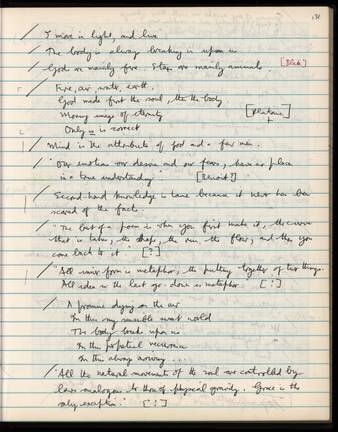 I move in light, and live
The body is always breaking in upon us
God we mainly five. Stars are mainly animals. [Blake]
Fire, air, water, earth.
God made first the soul, then the body
Moving image of eternity [Plotinus]
Only is is correct
Mind is the attribute of god and a few men.
"Our emotion our desire and our fears, have no place
in a true understanding" [Benoit?]
Second-hand knowledge is lame because it never has been
scared of the facts.
"The best of a poem is when you first make it, the curve
that it takes, the shape, the run, the flow, and then you
come back to it". [?]
"All form is metaphor, the putting together of two things.
All idea in the last go-down is metaphor. [?]
A promise dying on the air
In this my sensible world
The body breaks upon us.
In this perpetual recurrence
In this always arriving ...
"All the natural movements of the soul are controlled by
laws analogous to those of physical gravity. Grace is the
only exception." [?]